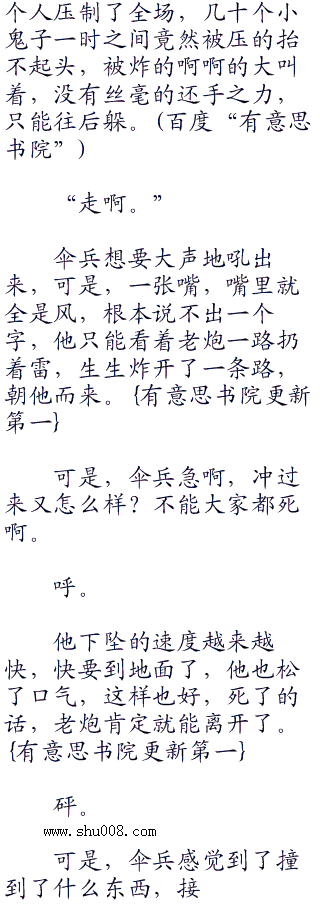 个人压制了全场，几十个小
鬼子一时之间竟然被压的抬
不起头，被炸的啊啊的大叫
着，没有丝毫的还手之力，
只能往后躲。(百度“有意思
书院”)
“走啊。”
伞兵想要大声地吼出
来，可是，一张嘴，嘴里就
全是风，根本说不出一个
字，他只能看着老炮一路扔
着雷，生生炸开了一条路，
朝他而来。{有意思书院更新
第一}
可是，伞兵急啊，冲过
来又怎么样？不能大家都死
啊。
呼。
他下坠的速度越来越
快，快要到地面了，他也松
了口气，这样也好，死了的
话，老炮肯定就能离开了。
{有意思书院更新第一}
砰。
www.shu008.com
可是，伞兵感觉到了撞
到了什么东西，接